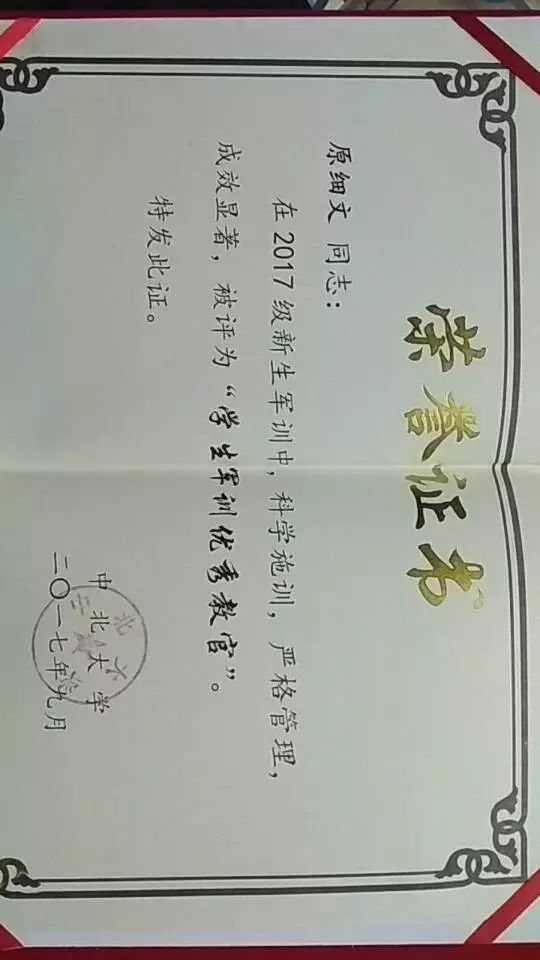 荣誉证书
原细文 同志：
在2017级新生军训中，科学施训，严格管理，
成效显著，被评为“学生军训优秀教官”。
特发此证。
中北大学
二〇一七年九月